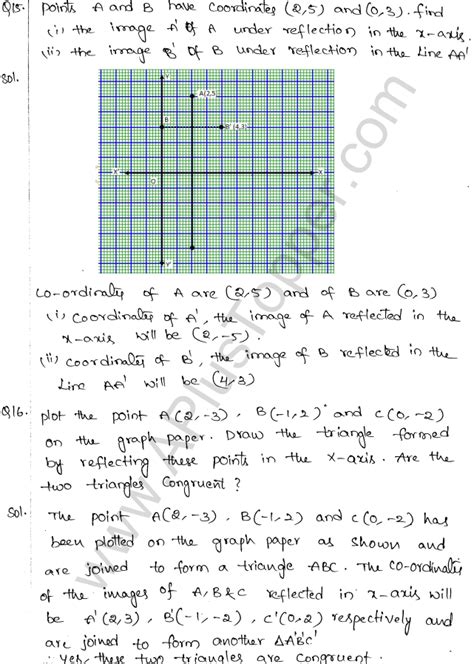 Q15. Points A and B have coordinates (2,5) and (0,3). find
(i) the image A' of A under reflection in the x-axis.
(ii) the image B' of B under reflection in the Line AA'
Sol.
Y
A(2,5
B
B'(4,3)
X'
X
O
Y'
Co-ordinates of A are (2,5) and of B are (0,3)
(i) Coordinates of A', the image of A reflected in the
x-axis will be (2,-5).
(ii) Coordinates of B', the image of B reflected in the
Line AA' will be (4,3)
Q16. plot the point A(2,-3), B(-1,2) and C(0,-2)
on the graph paper. Draw the triangle formed
by reflecting these points in the x-axis. Are the
two triangles Congruent?
Sol. The point A(2,-3), B(-1,2) and C(0,-2) has
been plotted on the graph paper as shown and
are joined to form a triangle ABC. The co-ordinates
of the images of A,B & C reflected in x-axis will
be A'(2,3), B'(-1,-2), C'(0,2) respectively and
are joined to form another ΔA'B'C'
∴ Yes, these two triangles are congruent.
www.APlusTopper.com